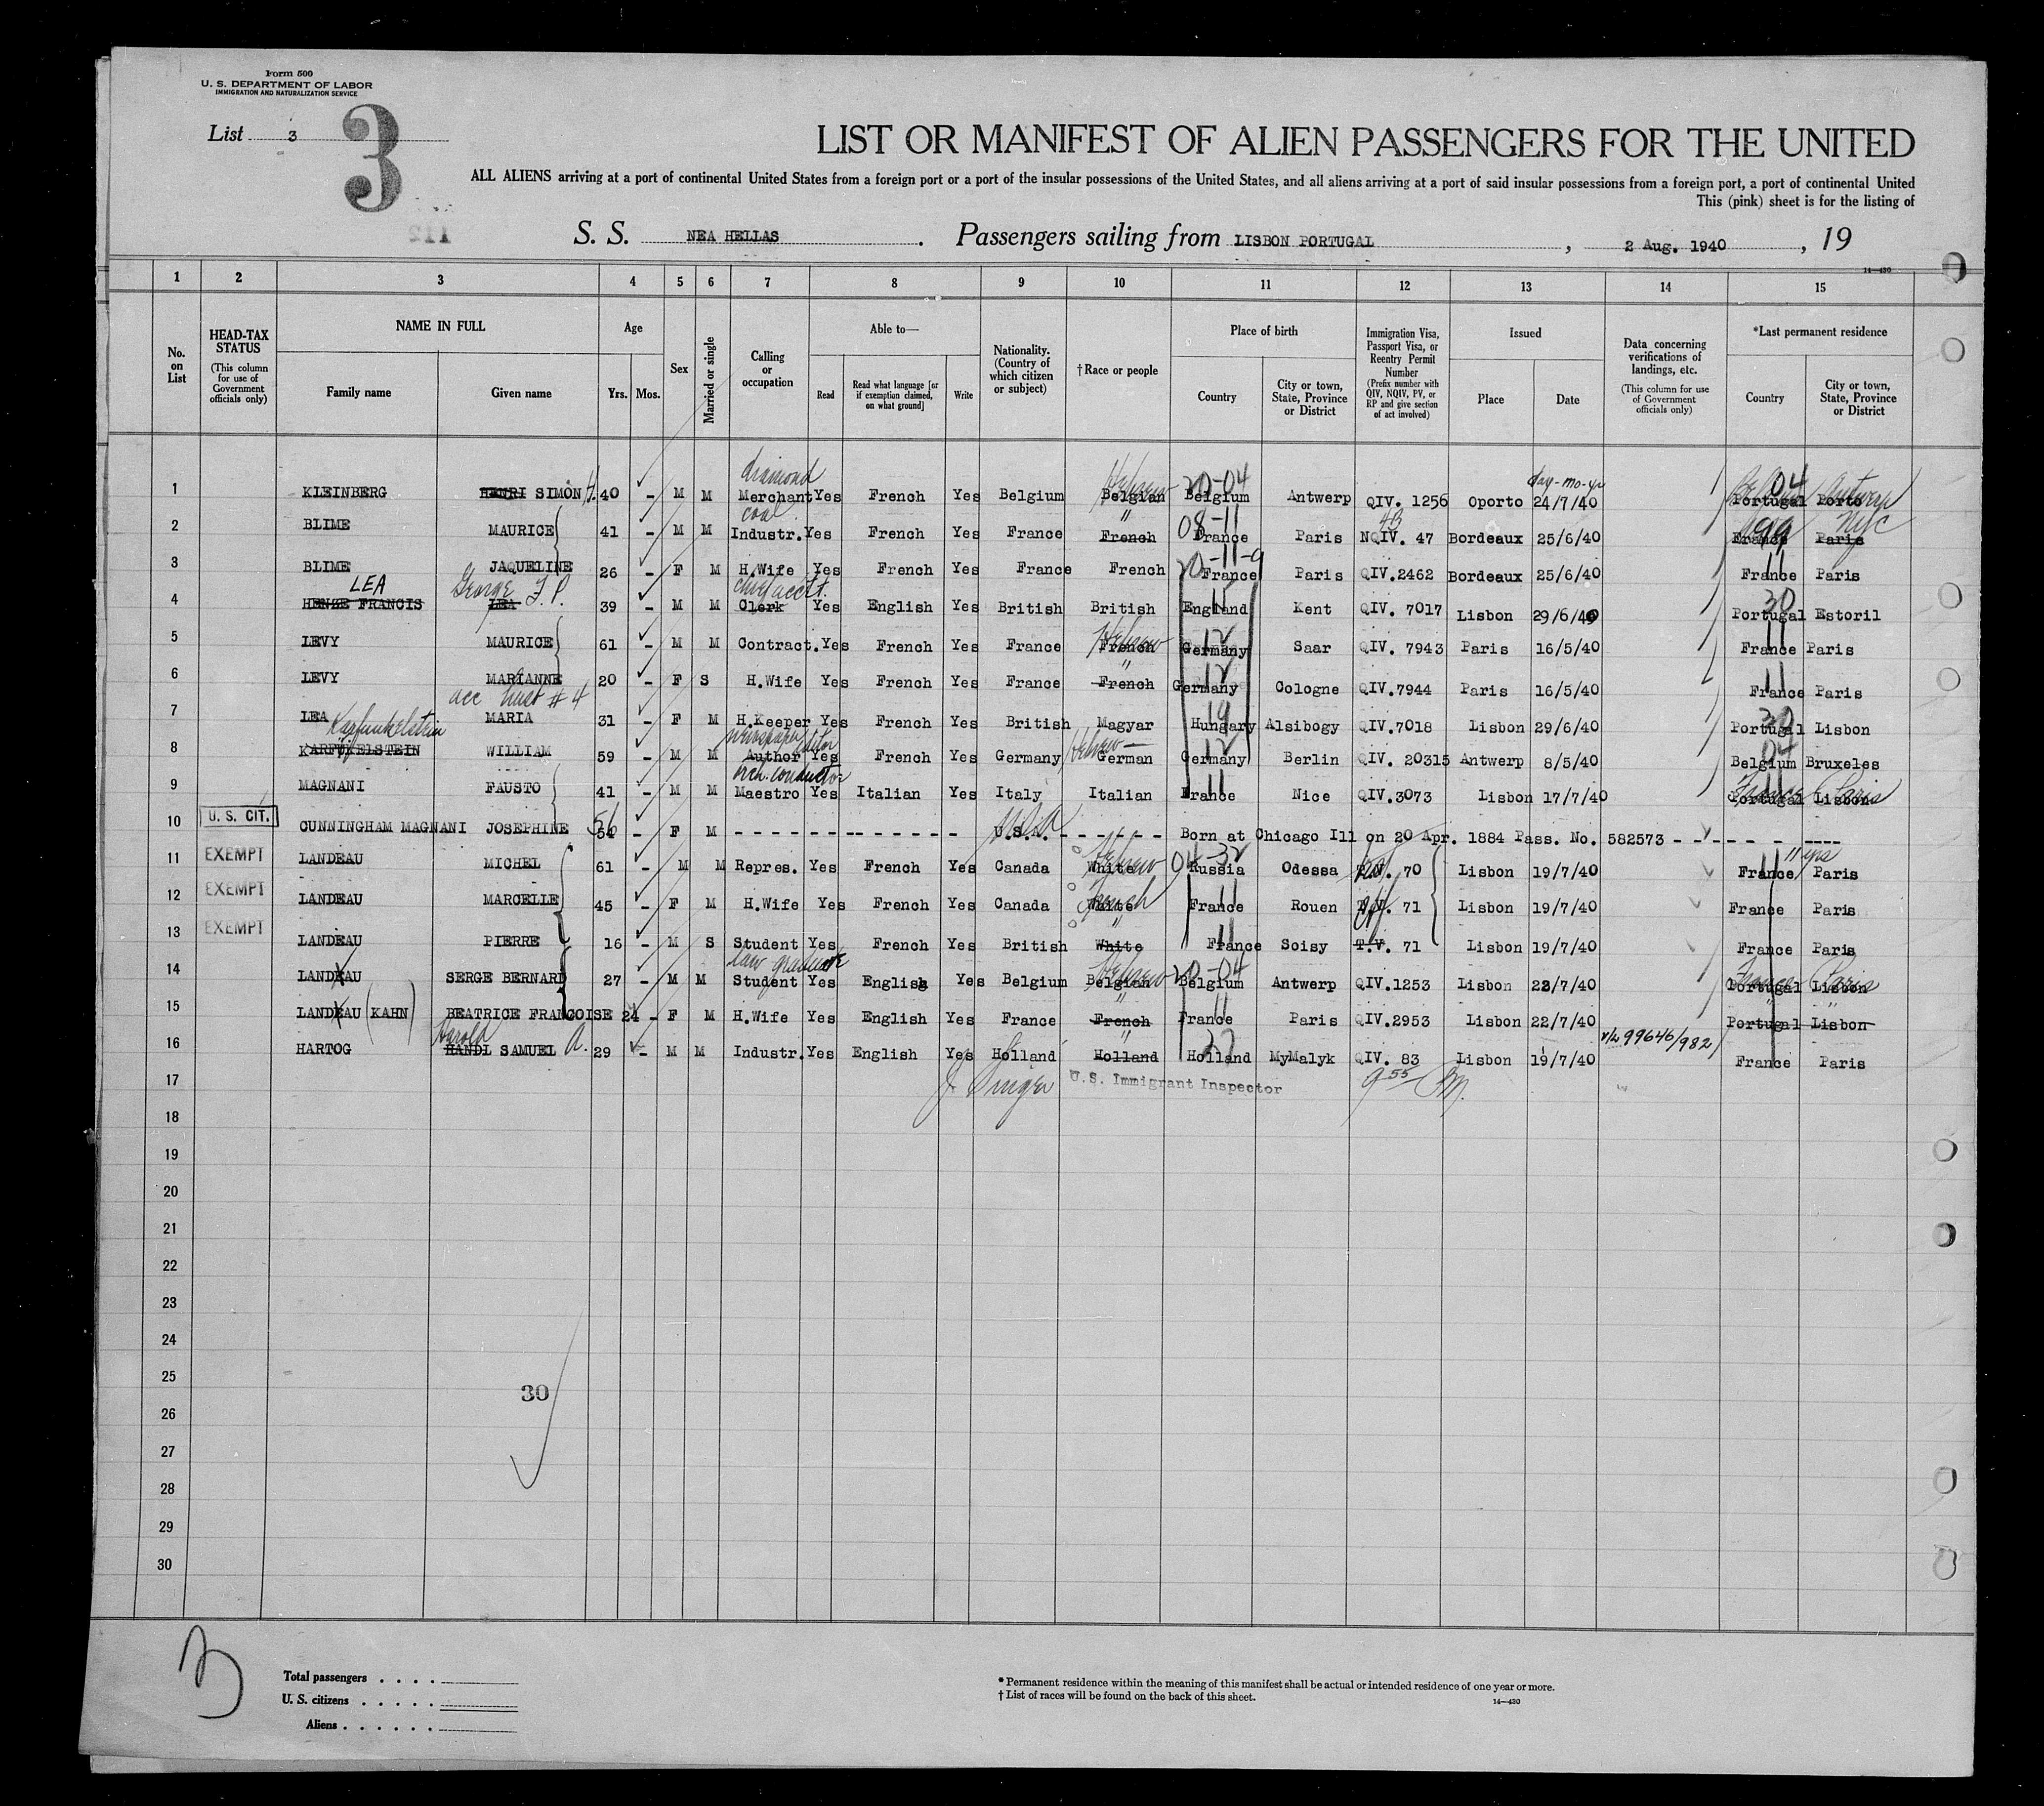 Form 500
U. S. DEPARTMENT OF LABOR
IMMIGRATION AND NATURALIZATION SERVICE
List 3
3
LIST OR MANIFEST OF ALIEN PASSENGERS FOR THE UNITED
ALL ALIENS arriving at a port of continental United States from a foreign port or a port of the insular possessions of the United States, and all aliens arriving at a port of said insular possessions from a foreign port, a port of continental United
This (pink) sheet is for the listing of
112
S. S. NEA HELLAS . Passengers sailing from LISBON PORTUGAL , 2 Aug. 1940 , 19
14—430
1 2 3 4 5 6 7 8 9 10 11 12 13 14 15
No. on List
HEAD-TAX STATUS (This column for use of Government officials only)
NAME IN FULL Family name Given name
Age Yrs. Mos.
Sex
Married or single
Calling or occupation
Able to— Read Read what language [or if exemption claimed, on what ground] Write
Nationality. (Country of which citizen or subject)
†Race or people
Place of birth Country City or town, State, Province or District
Immigration Visa, Passport Visa, or Reentry Permit Number (Prefix number with QIV, NQIV, PV, or RP and give section of act involved)
Issued Place Date
Data concerning verifications of landings, etc. (This column for use of Government officials only)
*Last permanent residence Country City or town, State, Province or District
diamond Hebrew 20-04 day-mo-yr 04 Antwerp
1 KLEINBERG HENRI SIMON H. 40 - M M Merchant Yes French Yes Belgium Belgian Belgium Antwerp QIV. 1256 Oporto 24/7/40 Portugal Porto
coal " 08-11 4B 99 NYC
2 BLIME MAURICE 41 - M M Industr. Yes French Yes France French France Paris NQIV. 47 Bordeaux 25/6/40 France Paris
20-11-9 11
3 BLIME JAQUELINE 26 - F M H.Wife Yes French Yes France French France Paris QIV.2462 Bordeaux 25/6/40 France Paris
LEA George F.P. chief acct. 30
4 HENZE FRANCIS LEA 39 - M M Clerk Yes English Yes British British England Kent QIV. 7017 Lisbon 29/6/40 Portugal Estoril
Hebrew 12 11
5 LEVY MAURICE 61 - M M Contract. Yes French Yes France French Germany Saar QIV. 7943 Paris 16/5/40 France Paris
" 12 11
6 LEVY MARIANNE 20 - F S H.Wife Yes French Yes France French Germany Cologne QIV.7944 Paris 16/5/40 France Paris
acc husb # 4 19 30
7 LEA MARIA 31 - F M H.Keeper Yes French Yes British Magyar Hungary Alsibogy QIV.7018 Lisbon 29/6/40 Portugal Lisbon
Karfunkelstein newspaper editor Hebrew 12 04
8 KARFUKELSTEIN WILLIAM 59 - M M Author Yes French Yes Germany German Germany Berlin QIV. 20315 Antwerp 8/5/40 Belgium Bruxeles
orch. conductor 11 France Paris
9 MAGNANI FAUSTO 41 - M M Maestro Yes Italian Yes Italy Italian France Nice QIV.3073 Lisbon 17/7/40 Portugal Lisbon
56 U.S.A.
10 U. S. CIT. CUNNINGHAM MAGNANI JOSEPHINE 54 - F M - - - - - - - - - - - - U.S.A. - - - - - - Born at Chicago Ill on 20 Apr. 1884 Pass. No. 582573 - - - - - - ----
Hebrew 04-32 11 yrs
11 EXEMPT LANDEAU MICHEL 61 - M M Repres. Yes French Yes Canada White Russia Odessa 70 Lisbon 19/7/40 France Paris
French 11
12 EXEMPT LANDEAU MARCELLE 45 - F M H.Wife Yes French Yes Canada White France Rouen 71 Lisbon 19/7/40 France Paris
" 11
13 EXEMPT LANDEAU PIERRE 16 - M S Student Yes French Yes British White France Soisy T.V. 71 Lisbon 19/7/40 France Paris
law graduate Hebrew 20-04 France Paris
14 LANDEAU SERGE BERNARD 27 - M M Student Yes English Yes Belgium Belgian Belgium Antwerp QIV.1253 Lisbon 22/7/40 Portugal Lisbon
" 11 " "
15 LANDEAU (KAHN) BEATRICE FRANCOISE 24 - F M H.Wife Yes English Yes France French France Paris QIV.2953 Lisbon 22/7/40 Portugal Lisbon
Harold A. " 27 V/L 99646/982
16 HARTOG HANDL SAMUEL 29 - M M Industr. Yes English Yes Holland Holland Holland MyMalyk QIV. 83 Lisbon 19/7/40 France Paris
17 J Singer U.S. Immigrant Inspector 9 55 PM.
18
19
20
21
22
23
24
25
30
26
27
28
29
30
3
Total passengers . . . .
U. S. citizens . . . . .
Aliens . . . . . .
* Permanent residence within the meaning of this manifest shall be actual or intended residence of one year or more.
† List of races will be found on the back of this sheet.
14—430